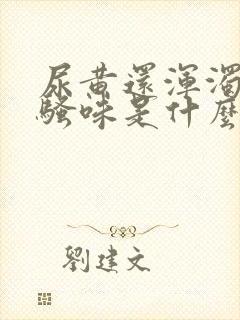 尿黄還渾濁
騷味是什麼
劉建文